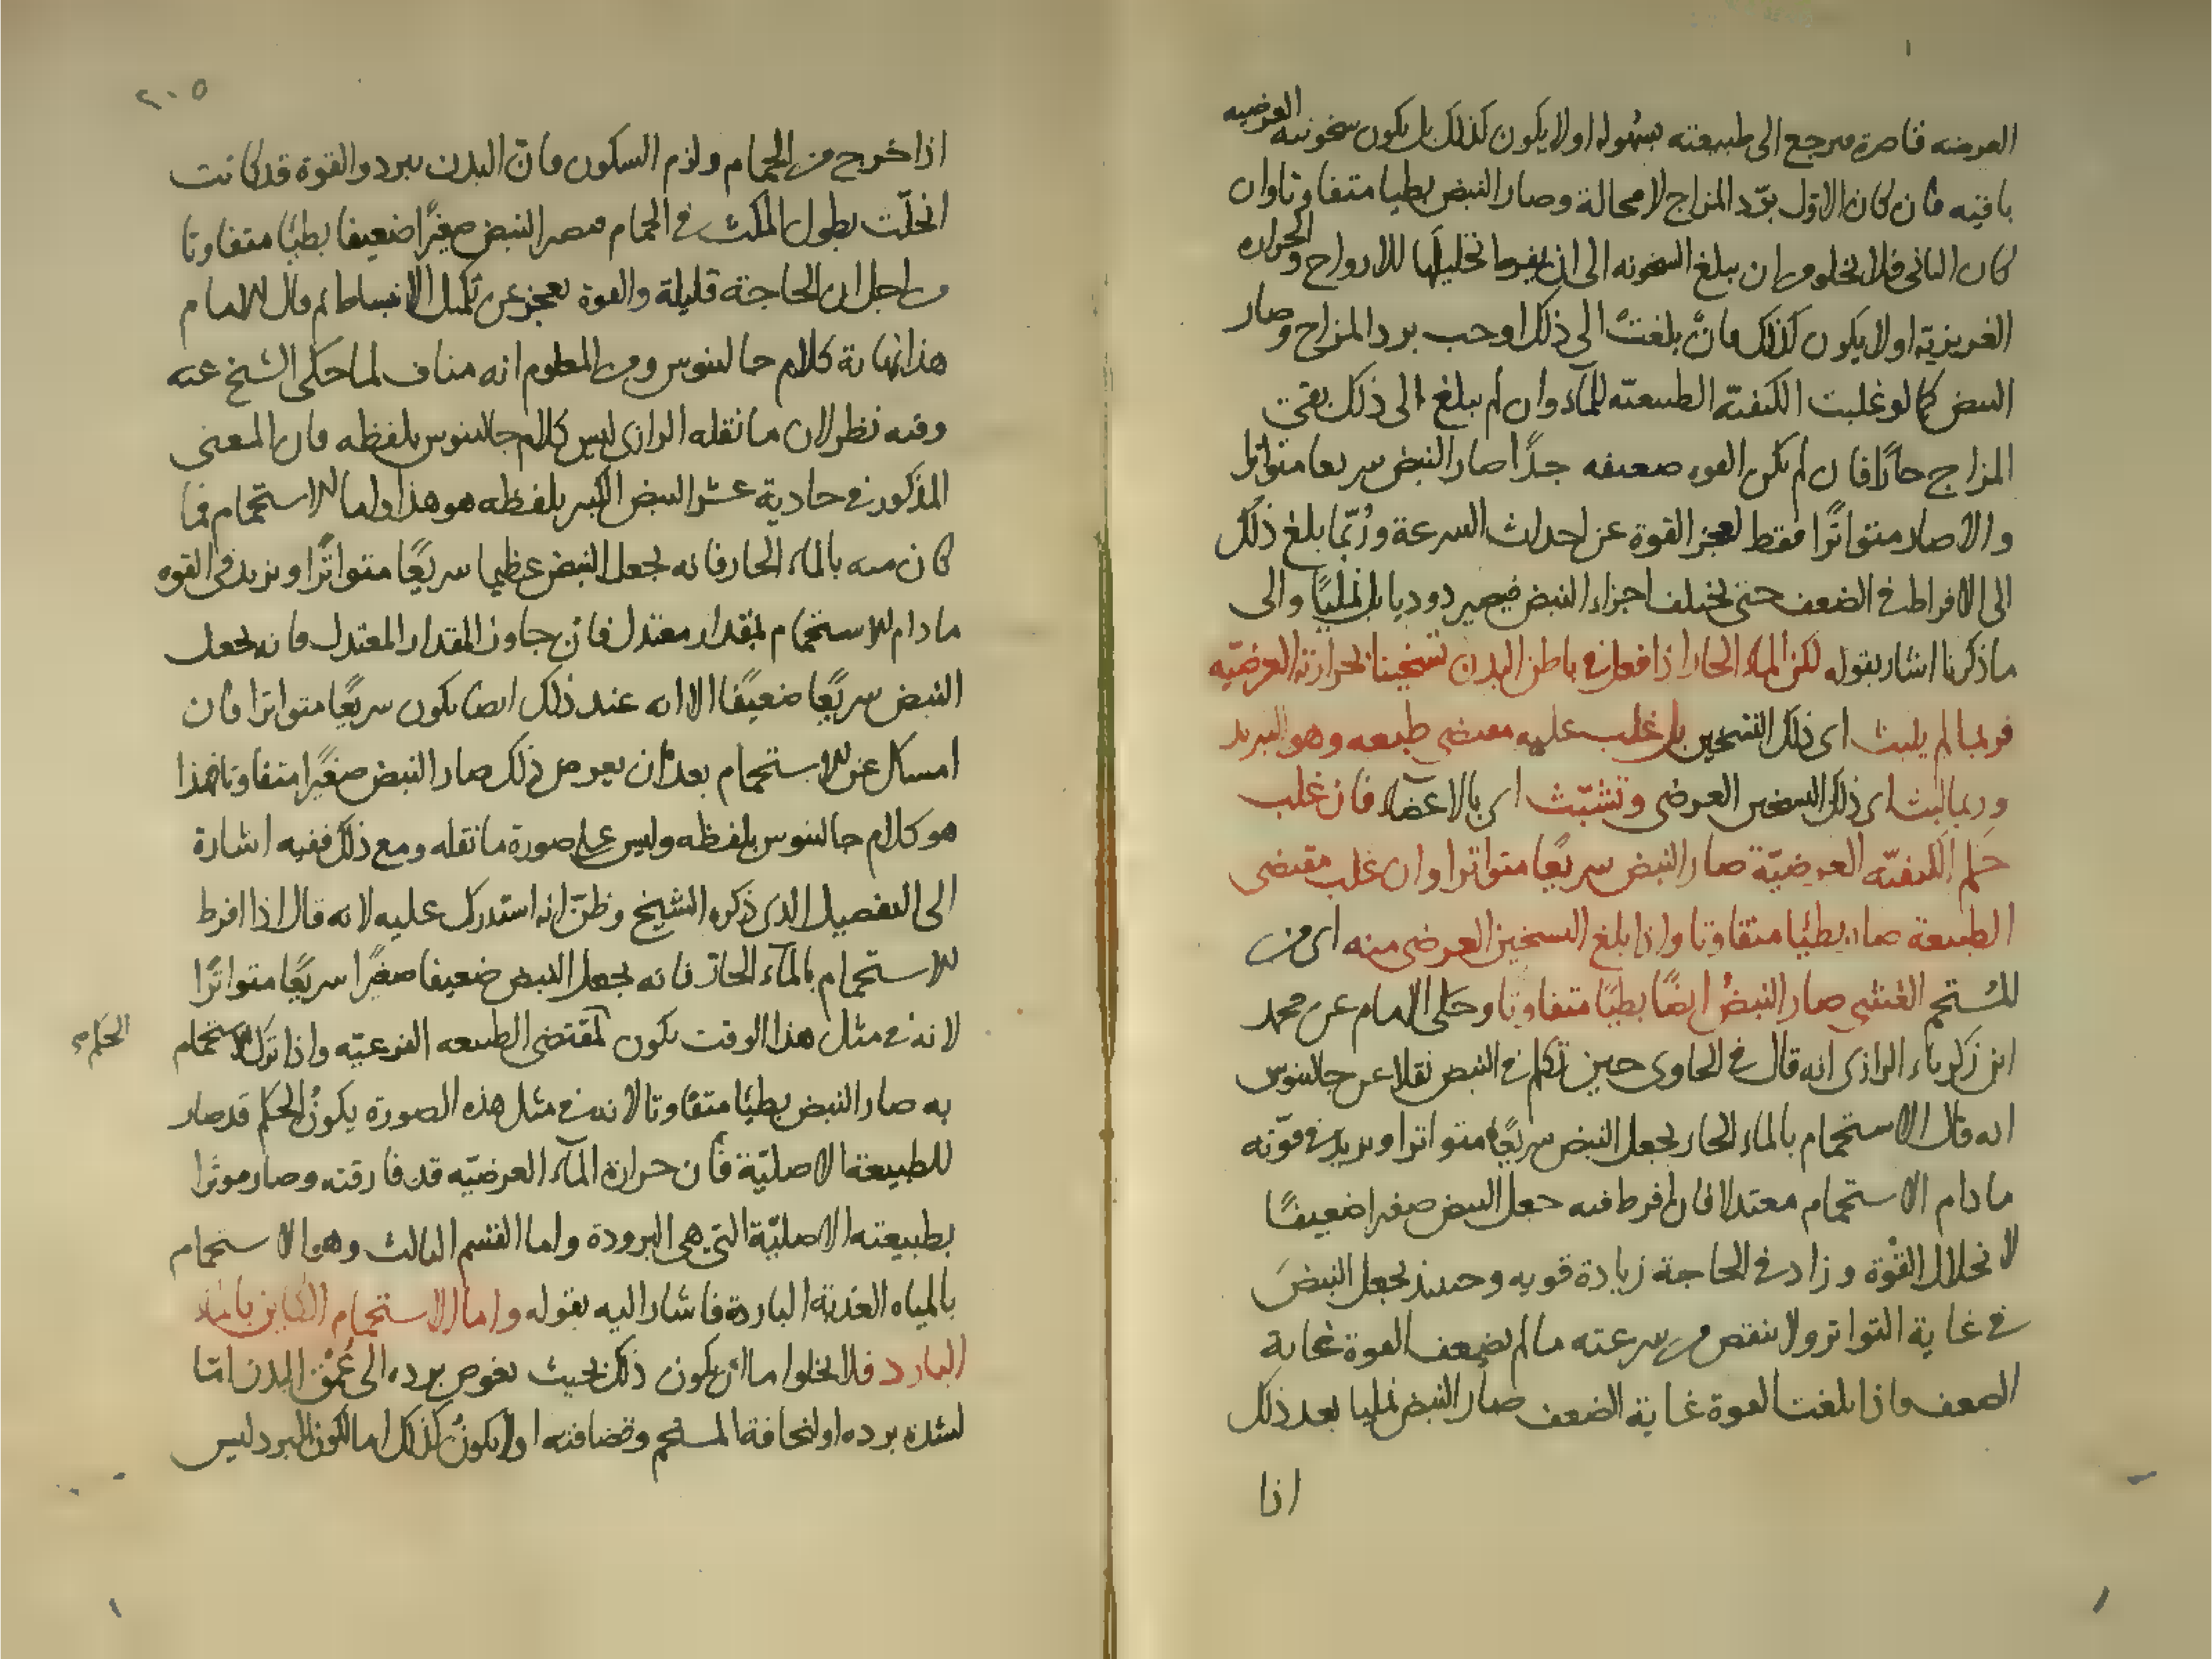 العرضيه قاصرة فيرجع الى طبيعته بسهوله اولا يكون كذلك بل يكون سخونته العرضيه
باقيه فان كان الاوّل برّد المزاج لا محالة وصار النبض بطيا متفاوتا وان
كان الثانى فلا يخلو من ان يبلغ السخونه الى ان يفرط تحليلها للارواح والحراره
الغريزيّة اولا يكون كذلك فانْ بلغتْ الى ذلك اوجب برد المزاج وصار
النبض كما لو غلبت الكيفيّة الطبيعيّة للماء وان لم يبلغ الى ذلك بقى
المزاج حارًا فان لم يكن القوه ضعيفه جدًا صار النبض سريعا متواترا
والا صار متواترًا فقط لعجز القوة عن احداث السرعة ورُبّما بلغ ذلك
الى الافراط فى الضعف حتى يختلف اجزاء النبض فيصير دوديا بل نمليًا والى
ما ذكرنا اشار بقوله لكن الماء الحار اذا فعل فى باطن البدن تسخينا بحرارته العرضيّه
فربما لم يلبث اى ذلك التسخين بل غلب عليه مقتضى طبعه وهو التبريد
وربما لبث اى ذلك التسخين العرضى وتشبّث اى بالاعضاء فان غلب
حكم الكيفيّه العرضيّة صار النبض سريعًا متواترا وان غلب مقتضى
الطبيعة صار بطيًا متفاوتا واذا بلغ التسخين العرضى منه اى من
المُستحم الغشى صار النبضُ ايضًا بطيًا متفاوتا وحكى الامام عن محمد
ابن زكرياء الرازى انه قال فى الحاوى حين تكلم فى النبض نقلا عن جالينوس
انه قال الاستحمام بالماء الحار يجعل النبض سريعًا متواترا ويزيد فى قوّته
ما دام الاستحمام معتدلا فان افرط فيه جعل النبض صغيرا ضعيفًا
لانحلال القوّة وزاد فى الحاجة زيادة قويه وحينئذ يجعل النبضَ
فى غاية التواتر ولا ينقص من سرعته ما لم يضعف القوة غاية
الضعف واذا بلغت القوة غاية الضعف صار النبض نمليا بعد ذلك
اذا
٢٠٥
اذا خرج من الحمام ولزم السكون فانّ البدن يبرد والقوة قد كانت
انحلّت بطول المكث فى الحمام فيصير النبض صغيرًا ضعيفا بطيًا متفاوتا
من اجل ان الحاجة قليلة والقوة تعجز عن تكميل الانبساط ثم قال الامام
هذا نهاية كلام جالينوس ومن المعلوم انه مناف لما حكى الشيخ عنه
وفيه نظر لان ما نقله الرازى ليس كلام جالينوس بلفظه فان المعنى
المذكور فى حادية عشر النبض الكبير بلفظه هو هذا واما الاستحمام فما
كان منه بالماء الحار فانه يجعل النبض عظيما سريعًا متواترًا ويزيد فى القوه
ما دام الاستحمام بمقدار معتدل فان جاوز المقدار المعتدل فانه يجعل
النبض سريعًا ضعيفًا الا انه عند ذلك ايضا يكون سريعًا متواترا فان
امسك عن الاستحمام بعد ان يعرض ذلك صار النبض صغيرًا متفاوتا فهذا
هو كلام جالينوس بلفظه وليس على صورة ما نقله ومع ذلك ففيه اشارة
الى التفصيل الذى ذكره الشيخ وظنّ انه استدرك عليه لانه قال اذا افرط
الاستحمام بالماء الحارّ فانه يجعل النبض ضعيفا صغيرًا سريعًا متواترًا
لانه فى مثل هذا الوقت يكون الحكم لمقتضى الطبيعه الفرعيّه واذا ترك الاستحمام
به صار النبض بطيئا متفاوتا لانه فى مثل هذه الصورة يكونُ الحكم قد صار
للطبيعة الاصليّة فأن حرارة الماء العرضيّه قد فارقته وصار موثرًا
بطبيعته الاصليّة التى هى البرودة واما القسم الثالث وهو الاستحمام
بالمياه العذبة الباردة فاشار اليه بقوله واما الاستحمام الكاين بالماء
البارد فلا يخلوا ما ان يكون ذلك بحيث يغوص برده الى عُمْق البدن امّا
لشدة برده او لنحافة المستحم وقضافته اولا يكونُ كذلك اما لكون البرد ليس